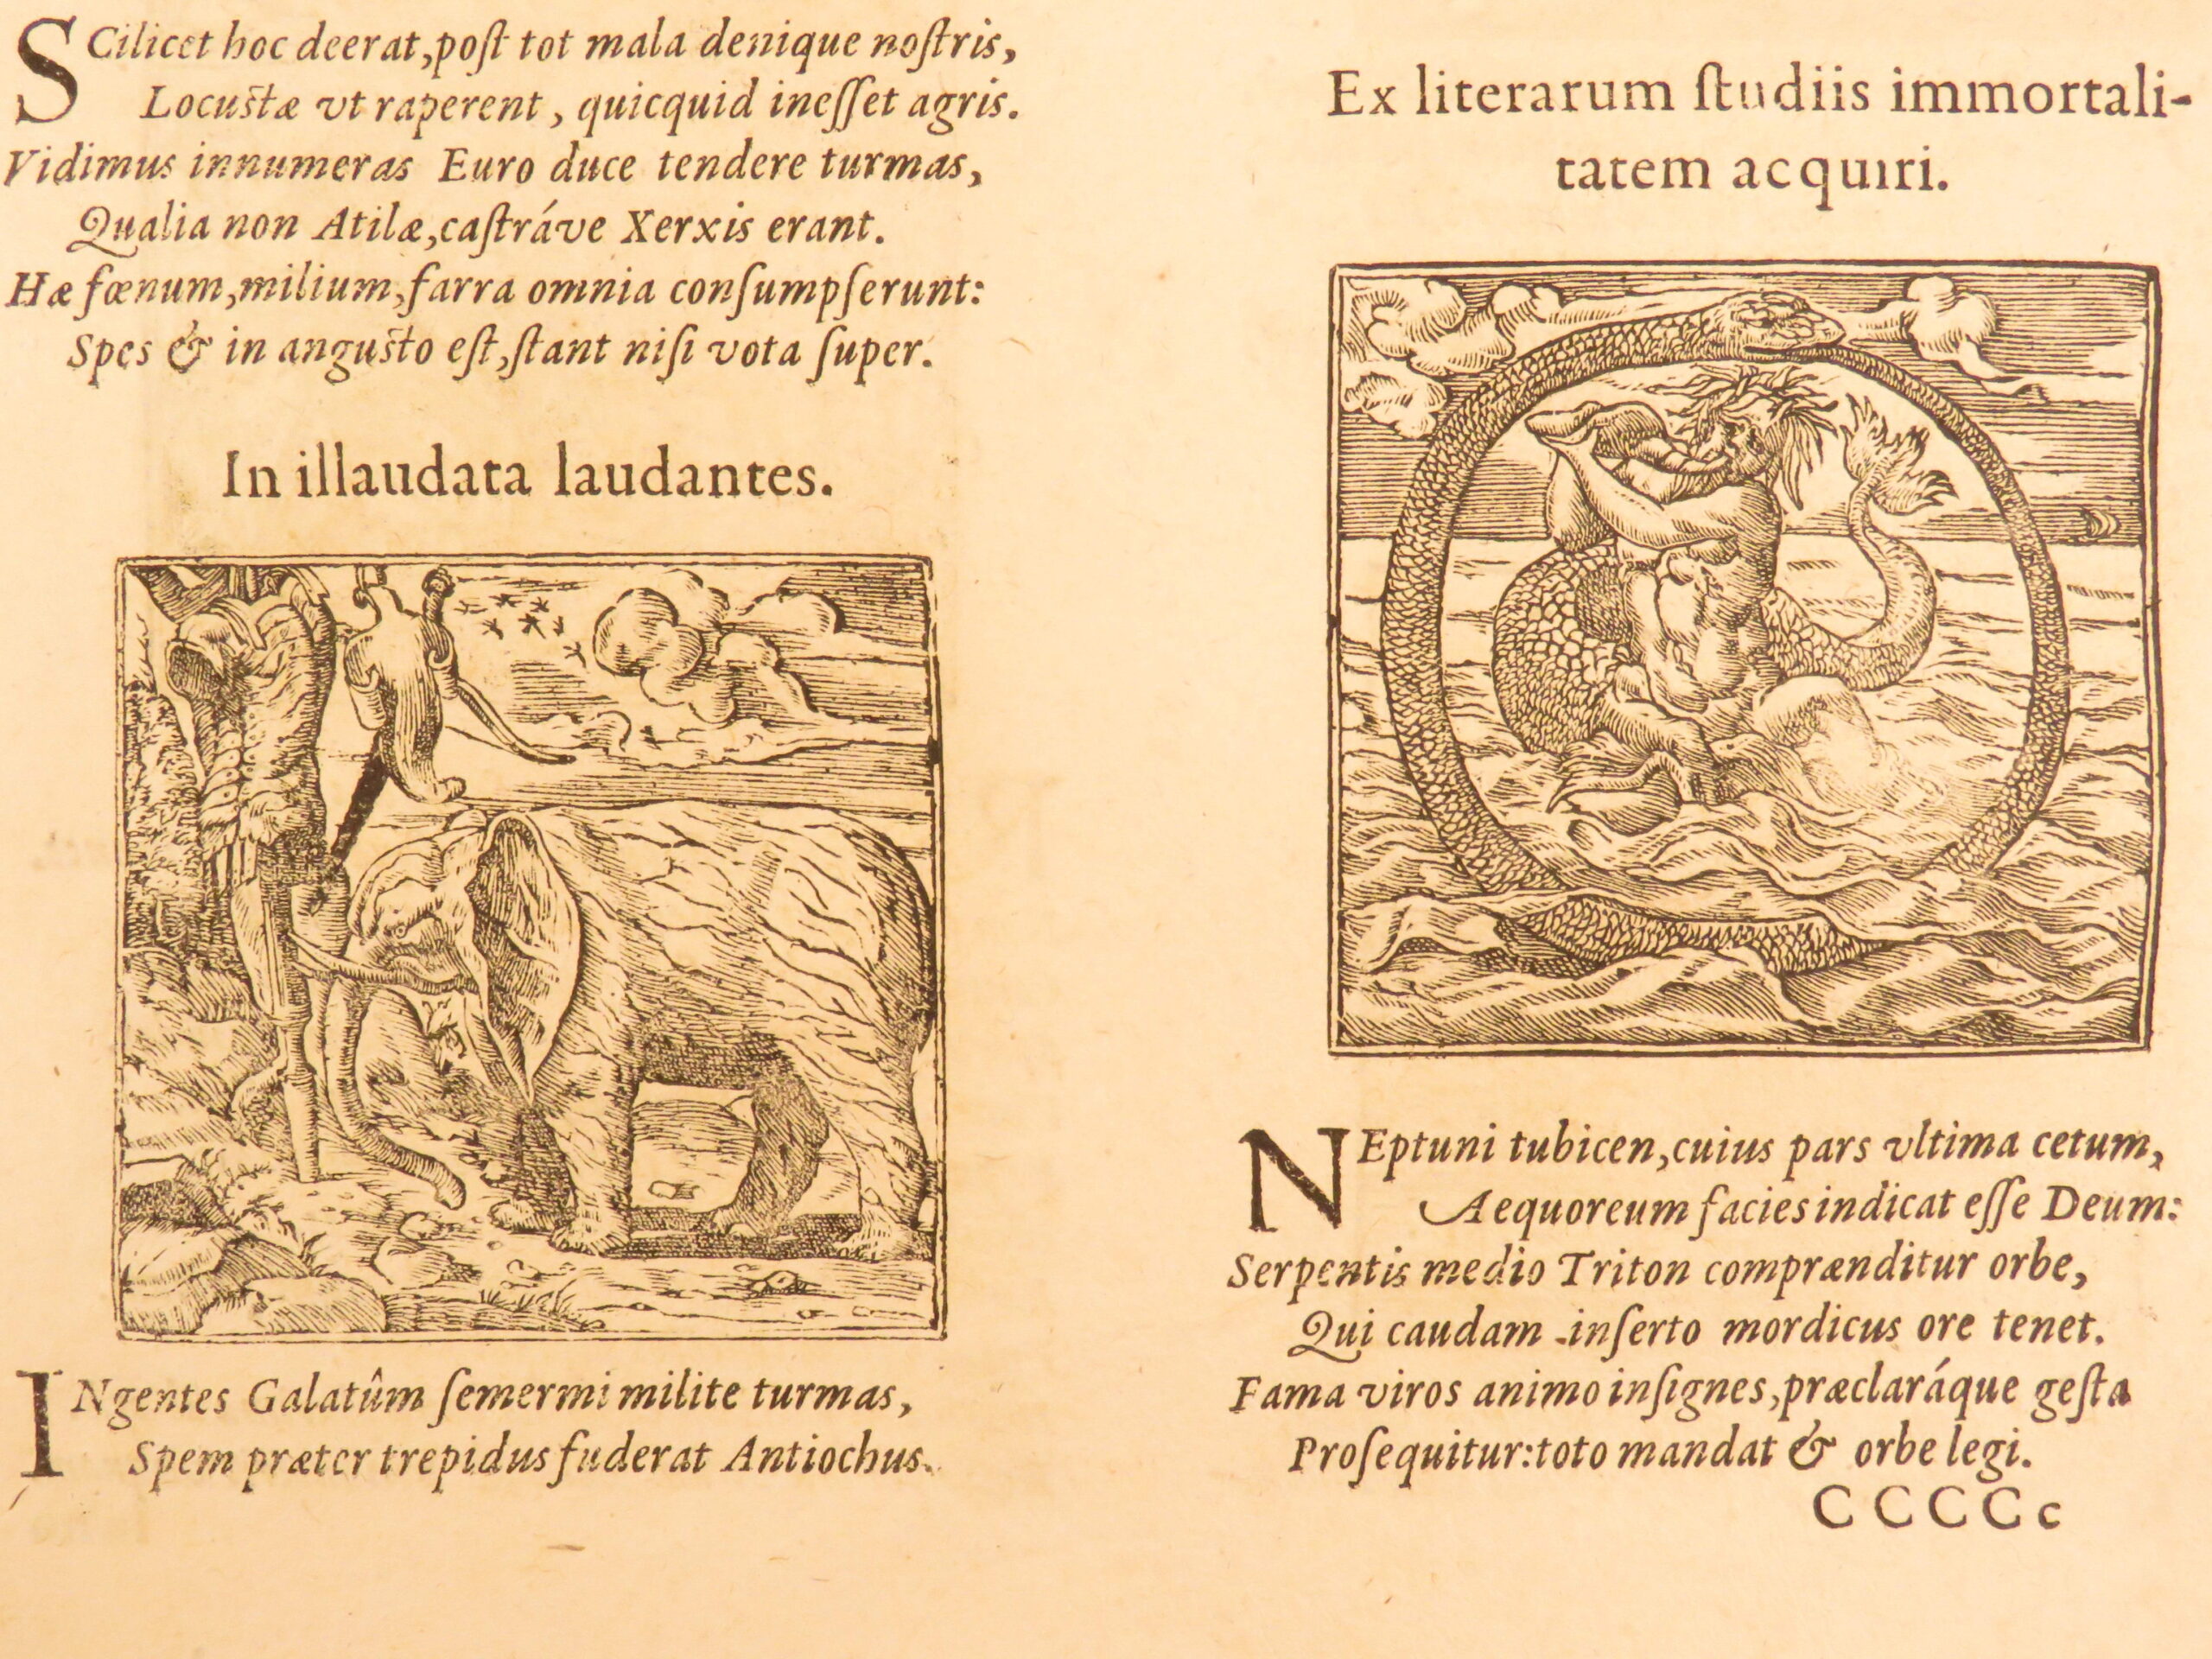 SCilicet hoc deerat,poſt tot mala denique noſtris,
Locuſtæ vt raperent, quicquid ineſſet agris.
Vidimus innumeras Euro duce tendere turmas,
Qualia non Atilæ,caſtráve Xerxis erant.
Hæ fœnum,milium,farra omnia conſumpſerunt:
Spes & in anguſto eſt,ſtant niſi vota ſuper.
In illaudata laudantes.
INgentes Galatûm ſemermi milite turmas,
Spem præter trepidus fuderat Antiochus.
Ex literarum ſtudiis immortali-
tatem acquiri.
NEptuni tubicen,cuius pars vltima cetum,
Aequoreum facies indicat eſſe Deum:
Serpentis medio Triton comprænditur orbe,
Qui caudam inſerto mordicus ore tenet.
Fama viros animo inſignes,præclaráque geſta
Proſequitur:toto mandat & orbe legi.
CCCCc